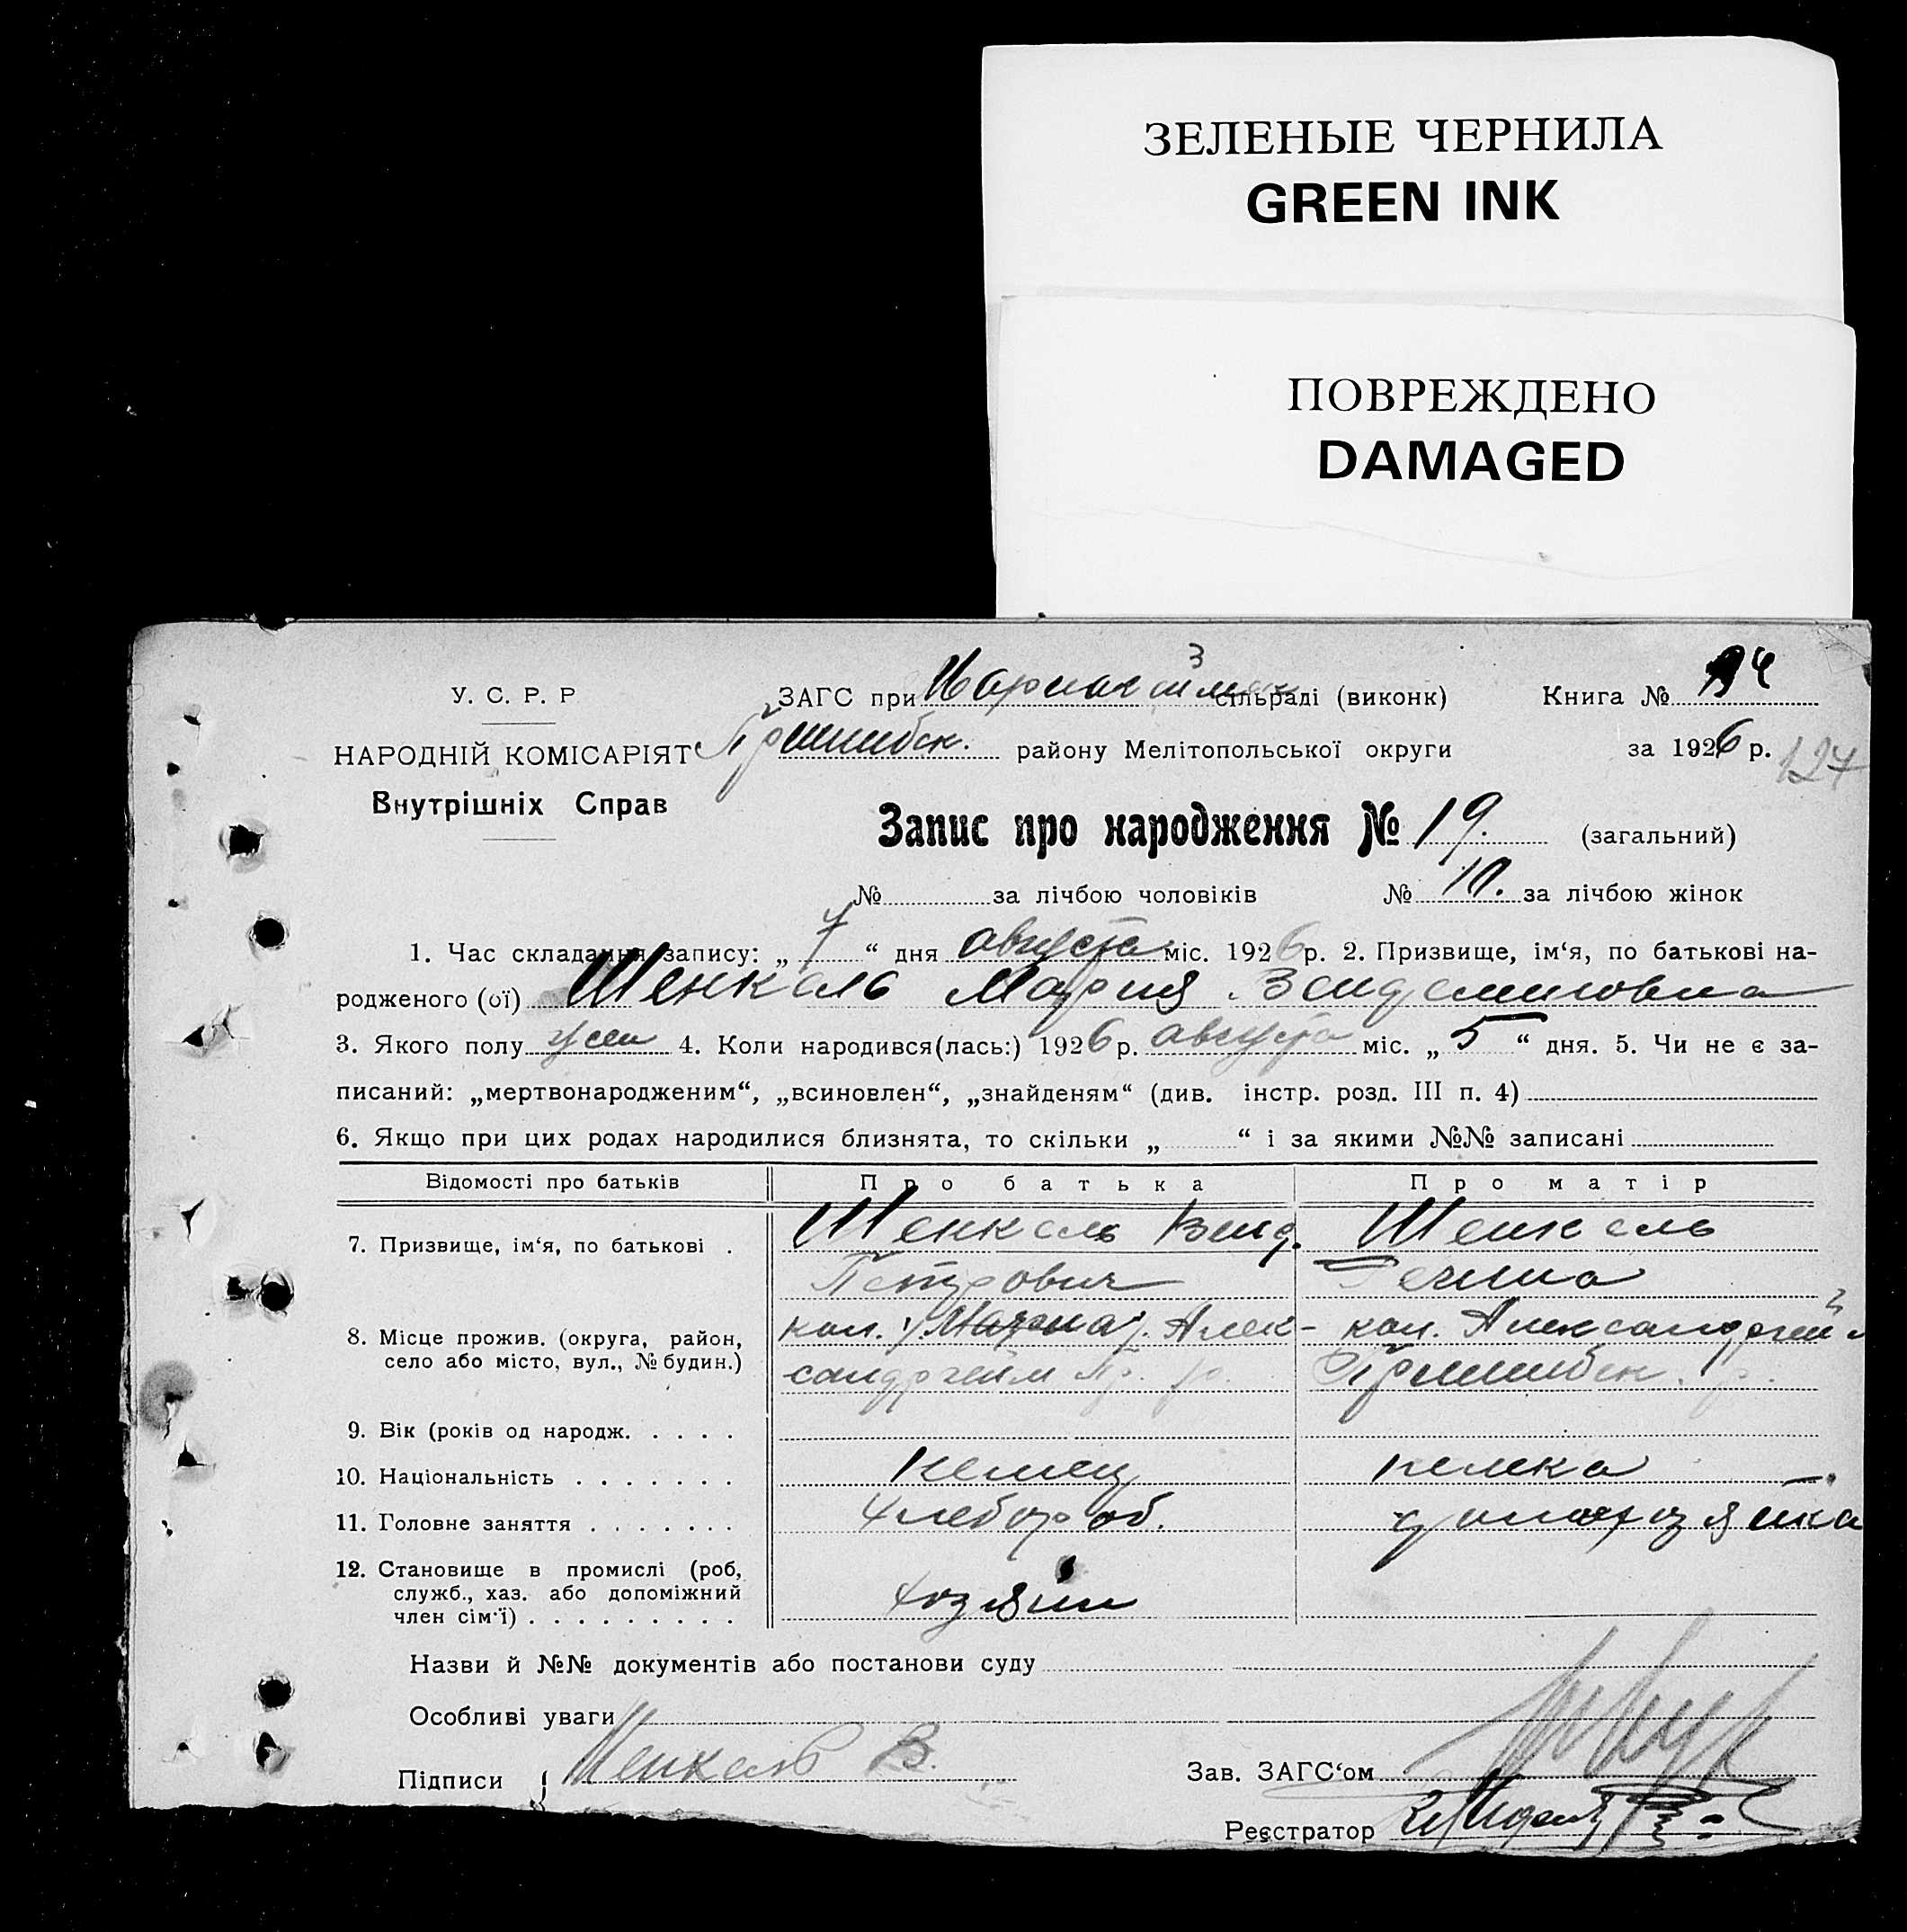 ЗЕЛЕНЫЕ ЧЕРНИЛА
GREEN INK
ПОВРЕЖДЕНО
DAMAGED
У. С. Р. Р
ЗАГС при сільраді (виконк) Книга №
НАРОДНІЙ КОМІСАРІЯТ Пришибск. району Мелітопольської округи за 1926 р.
127
Внутрішніх Справ
Запис про народження № 19. (загальний)
№ за лічбою чоловіків № 10. за лічбою жінок
1. Час складання запису: „ 7 “ дня августа міс. 1926 р. 2. Призвище, ім‘я, по батькові на-
родженого (ої) Шенкель Мария
3. Якого полу жен 4. Коли народився(лась:) 1926 р. августа міс. „ 5 “ дня. 5. Чи не є за-
писаний: „мертвонародженим“, „всиновлен“, „знайденям“ (див. інстр. розд. III п. 4)
6. Якщо при цих родах народилися близнята, то скільки „ “ і за якими №№ записані
Відомості про батьків Про батька Про матір
7. Призвище, ім‘я, по батькові . Шенкель Венд. Шенкель
Петрович
8. Місце прожив. (округа, район, село або місто, вул., № будин.) кол. Алек- кол. Александргейм
сандргейм Пр. р. Пришибск. р.
9. Вік (років од народж. . . . .
10. Національність . . . . . . . немец немка
11. Головне заняття . . . . . . . хлебороб. домохозяйка
12. Становище в промислі (роб, служб., хаз. або допоміжний член сім‘ї) . . . . . . . . . хозяин
Назви й №№ документів або постанови суду
Особливі уваги
Підписи { Шенкель В. Зав. ЗАГС‘ом
Реєстратор